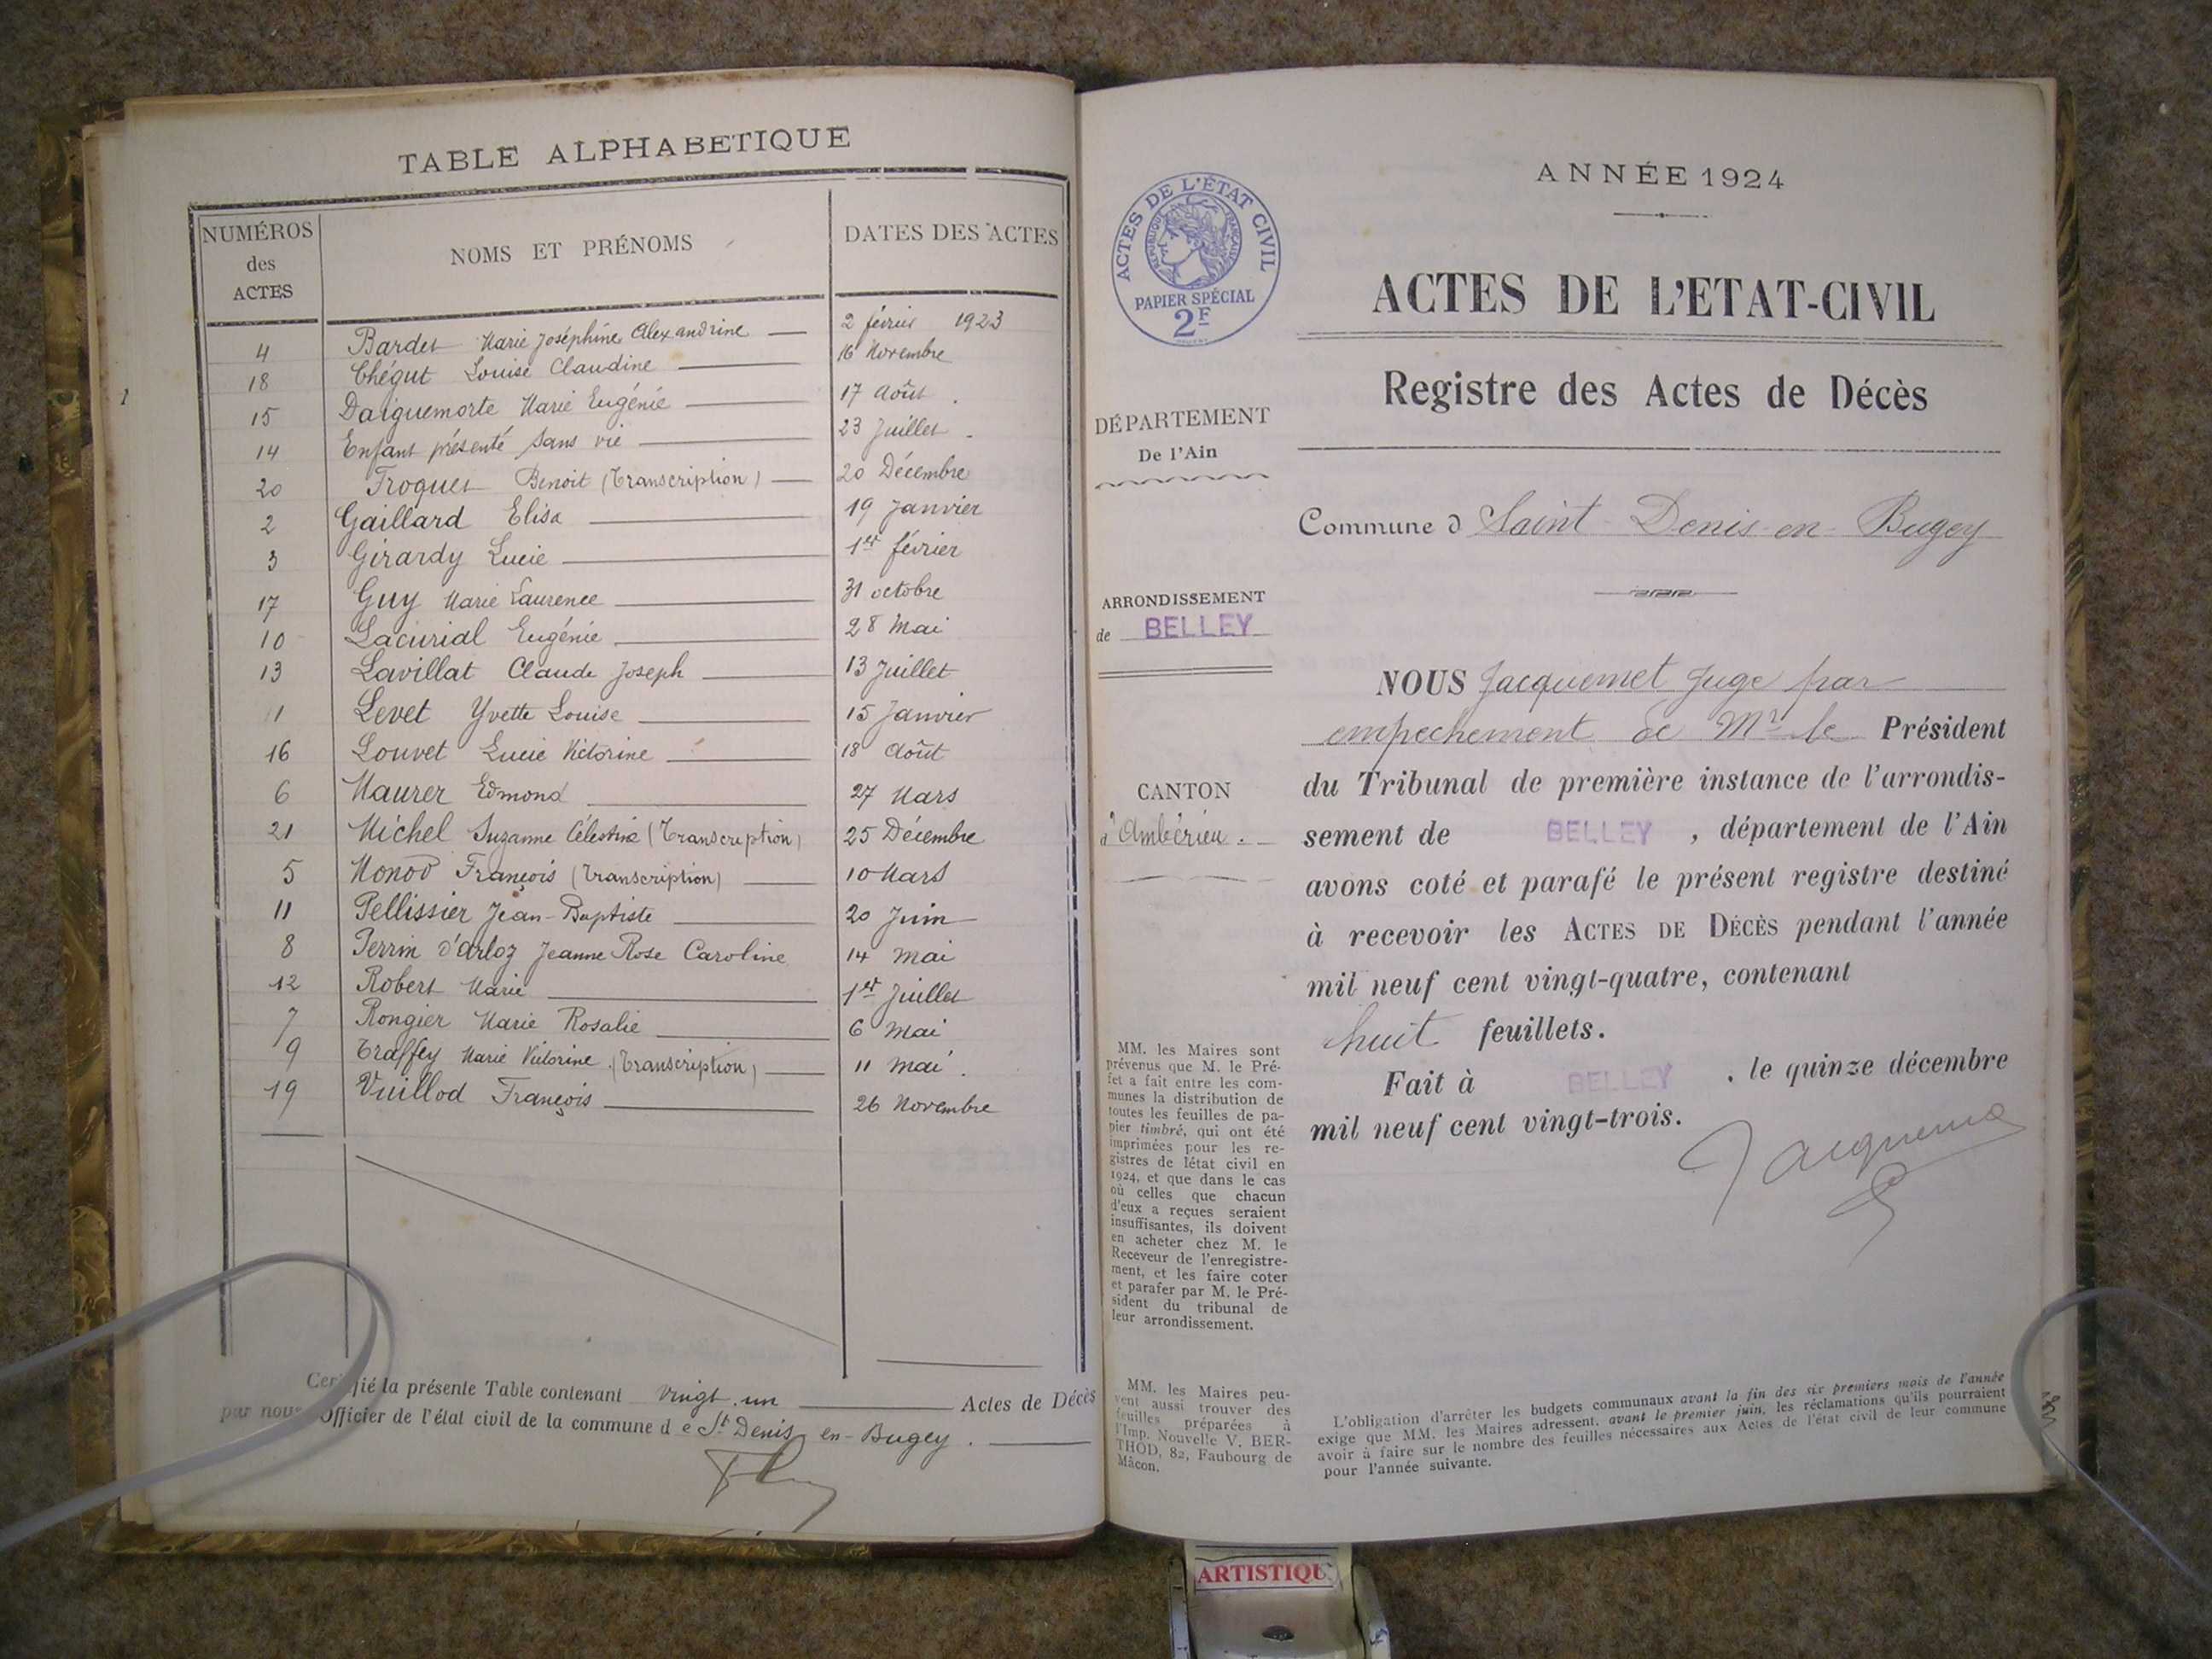 TABLE ALPHABETIQUE
NUMÉROS des ACTES
NOMS ET PRÉNOMS
DATES DES ACTES
4 Bardet Marie Joséphine Alexandrine 2 février 1923
18 Chégut Louise Claudine 16 Novembre
15 Daiguemorte Marie Eugénie 17 Août
14 Enfant présenté sans vie 23 Juillet
20 Froquet Benoit (Transcription) 20 Décembre
2 Gaillard Elisa 19 Janvier
3 Girardy Lucie 1er février
17 Guy Marie Laurence 31 octobre
10 Lacurial Eugénie 28 Mai
13 Lavillat Claude Joseph 13 Juillet
1 Levet Yvette Louise 15 Janvier
16 Louvet Lucie Victorine 18 Août
6 Maurer Edmond 27 Mars
21 Michel Suzanne Célestine (Transcription) 25 Décembre
5 Monod François (Transcription) 10 Mars
11 Pellissier Jean-Baptiste 20 Juin
8 Perrin d'Arloz Jeanne Rose Caroline 14 Mai
12 Robert Marie 1er Juillet
7 Rongier Marie Rosalie 6 Mai
9 Traffey Marie Victorine (Transcription) 11 Mai
19 Vuillod François 26 Novembre
Certifié la présente Table contenant vingt-un Actes de Décès
par nous Officier de l'état civil de la commune de St Denis-en-Bugey.
ANNÉE 1924
ACTES DE L'ÉTAT CIVIL
RÉPUBLIQUE FRANÇAISE
PAPIER SPÉCIAL
2F
ACTES DE L'ETAT-CIVIL
Registre des Actes de Décès
DÉPARTEMENT
De l'Ain
Commune d Saint-Denis-en-Bugey
ARRONDISSEMENT
de BELLEY
CANTON
d'Ambérieu.
NOUS Jacquemet Juge par
empechement de Mr le Président
du Tribunal de première instance de l'arrondis-
sement de BELLEY, département de l'Ain
avons coté et parafé le présent registre destiné
à recevoir les ACTES DE DÉCÈS pendant l'année
mil neuf cent vingt-quatre, contenant
huit feuillets.
Fait à BELLEY, le quinze décembre
mil neuf cent vingt-trois.
MM. les Maires sont
prévenus que M. le Pré-
fet a fait entre les com-
munes la distribution de
toutes les feuilles de pa-
pier timbré, qui ont été
imprimées pour les re-
gistres de l'état civil en
1924, et que dans le cas
où celles que chacun
d'eux a reçues seraient
insuffisantes, ils doivent
en acheter chez M. le
Receveur de l'enregistre-
ment, et les faire coter
et parafer par M. le Pré-
sident du tribunal de
leur arrondissement.
MM. les Maires peu-
vent aussi trouver des
feuilles préparées à
l'Imp. Nouvelle V. BER-
THOD, 82, Faubourg de
Mâcon.
L'obligation d'arrêter les budgets communaux avant la fin des six premiers mois de l'année
exige que MM. les Maires adressent, avant le premier juin, les réclamations qu'ils pourraient
avoir à faire sur le nombre des feuilles nécessaires aux Actes de l'état civil de leur commune
pour l'année suivante.
ARTISTIQU